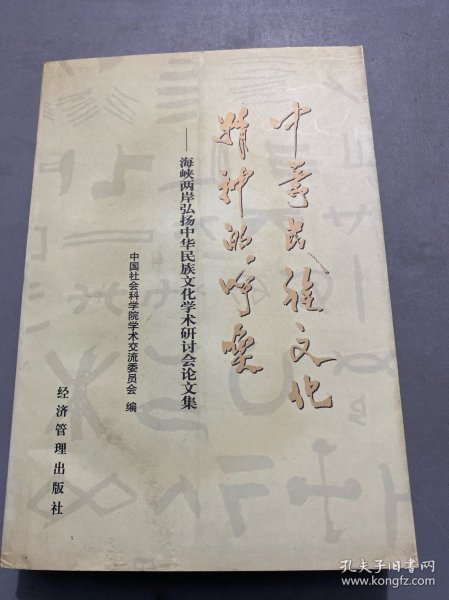 中华民族文化
精神的呼唤
——海峡两岸弘扬中华民族文化学术研讨会论文集
中国社会科学院学术交流委员会 编
经济管理出版社
孔夫子旧书网
www.kongfz.com